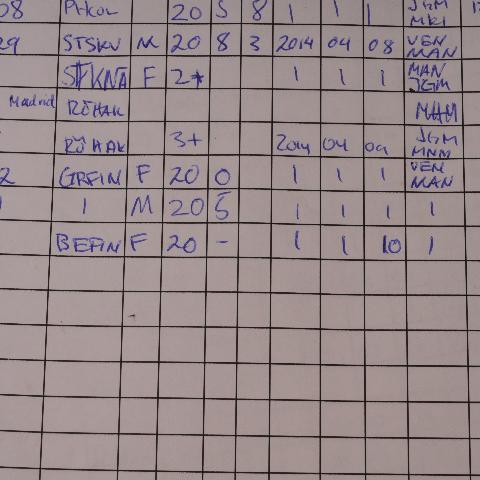 08 Pikou 20 5 8 1 1 1 JGM MKI
29 STSKV M 20 8 3 2014 04 08 VEN MAN
F 2+ 1 1 1 MAN JGM
Madrid RÖHAK
RÖHAK 3+ 2014 04 09 JGM MNM
2 GRFIN F 20 0 1 1 1 VEN MAN
1 1 M 20 5 1 1 1 1
BEFIN F 20 - 1 1 10 1